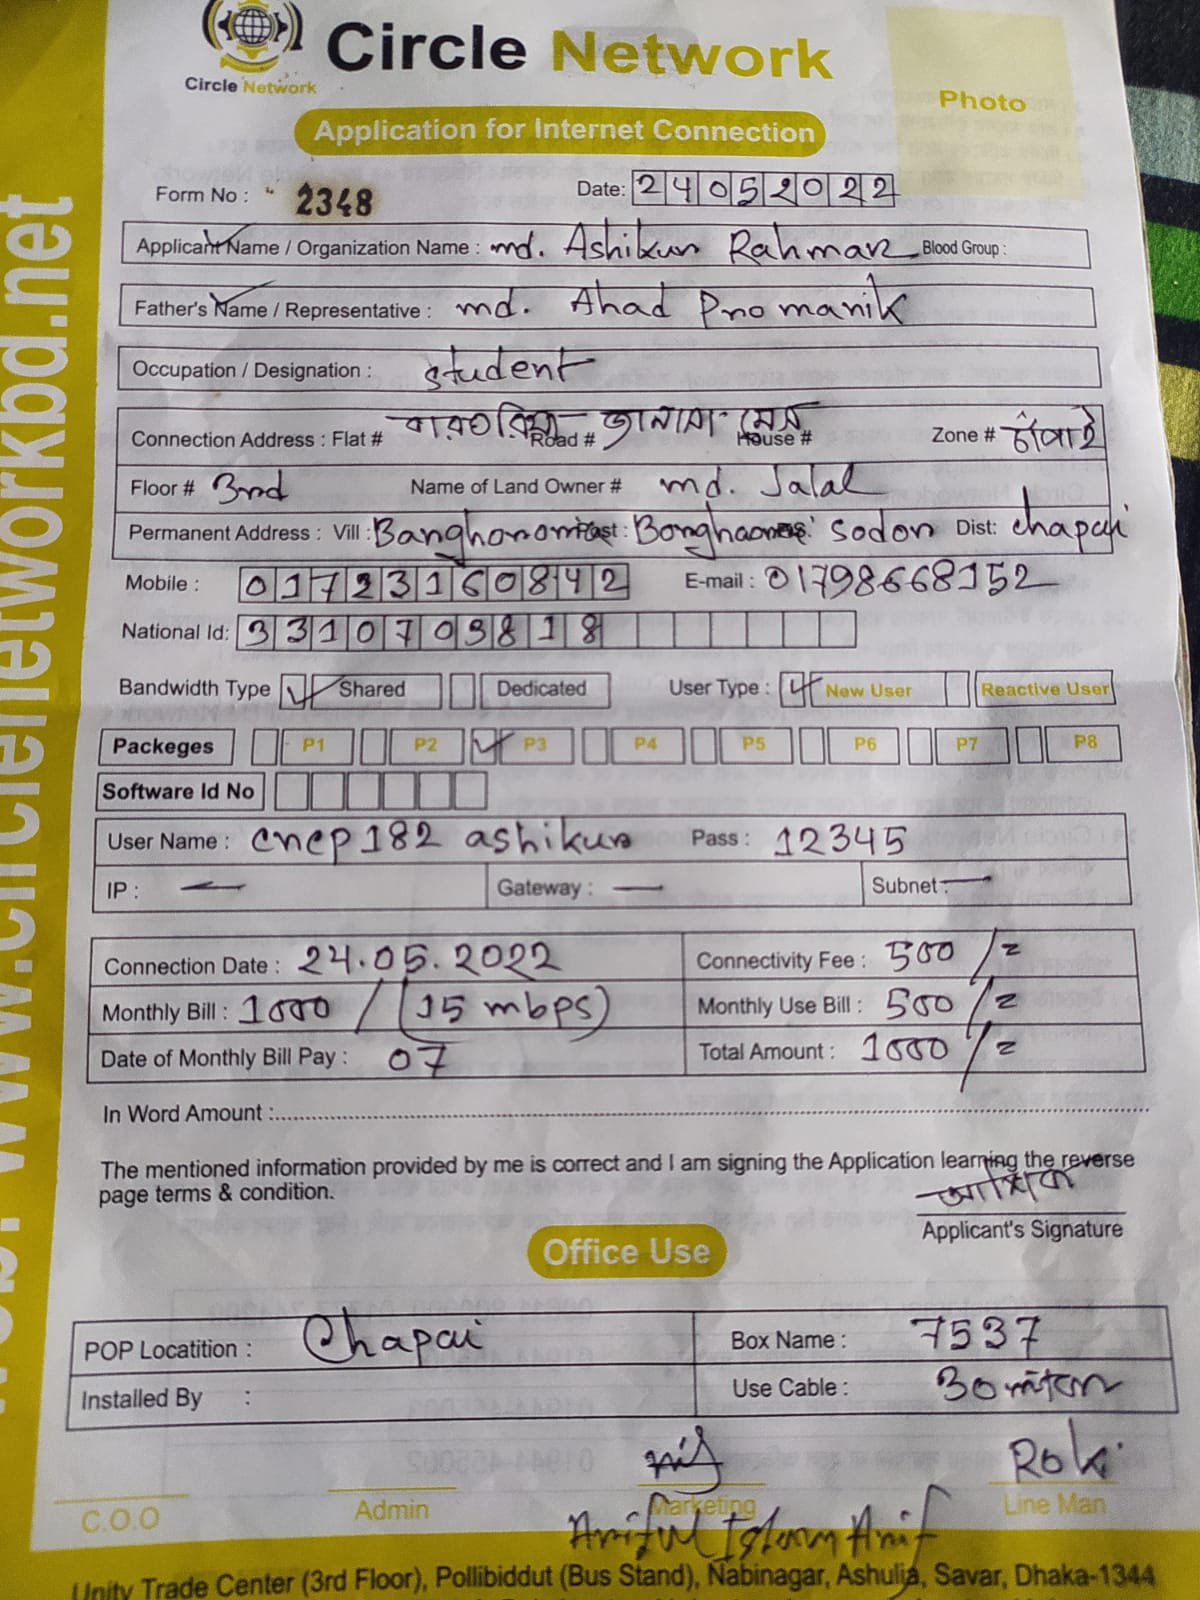 Circle Network
Circle Network
Photo
Application for Internet Connection
Form No : 2348 Date: 24052022
Applicant Name / Organization Name : md. Ashikun Rahman Blood Group :
Father's Name / Representative : md. Ahad Promanik
Occupation / Designation : student
Connection Address : Flat # Road # House # Zone # চাঁপাই
Floor # 3nd Name of Land Owner # md. Jalal
Permanent Address : Vill : Sodon Dist: chapai
Mobile : 01723160842 E-mail : 01798668152
National Id: 3310709818
Bandwidth Type Shared Dedicated User Type : New User Reactive User
Packeges P1 P2 P3 P4 P5 P6 P7 P8
Software Id No
User Name : cnep182 ashikun Pass : 12345
IP : — Gateway : — Subnet : —
Connection Date : 24.05.2022 Connectivity Fee : 500/=
Monthly Bill : 1000 / (15 mbps) Monthly Use Bill : 500/=
Date of Monthly Bill Pay : 07 Total Amount : 1000/=
In Word Amount :
The mentioned information provided by me is correct and I am signing the Application learning the reverse
page terms & condition.
Applicant's Signature
Office Use
POP Locatition : Chapai Box Name : 7537
Installed By : Use Cable : 30
Roki
C.O.O Admin Marketing Line Man
Ariful Islam Arif
Unity Trade Center (3rd Floor), Pollibiddut (Bus Stand), Nabinagar, Ashulia, Savar, Dhaka-1344
www.circlenetworkbd.net